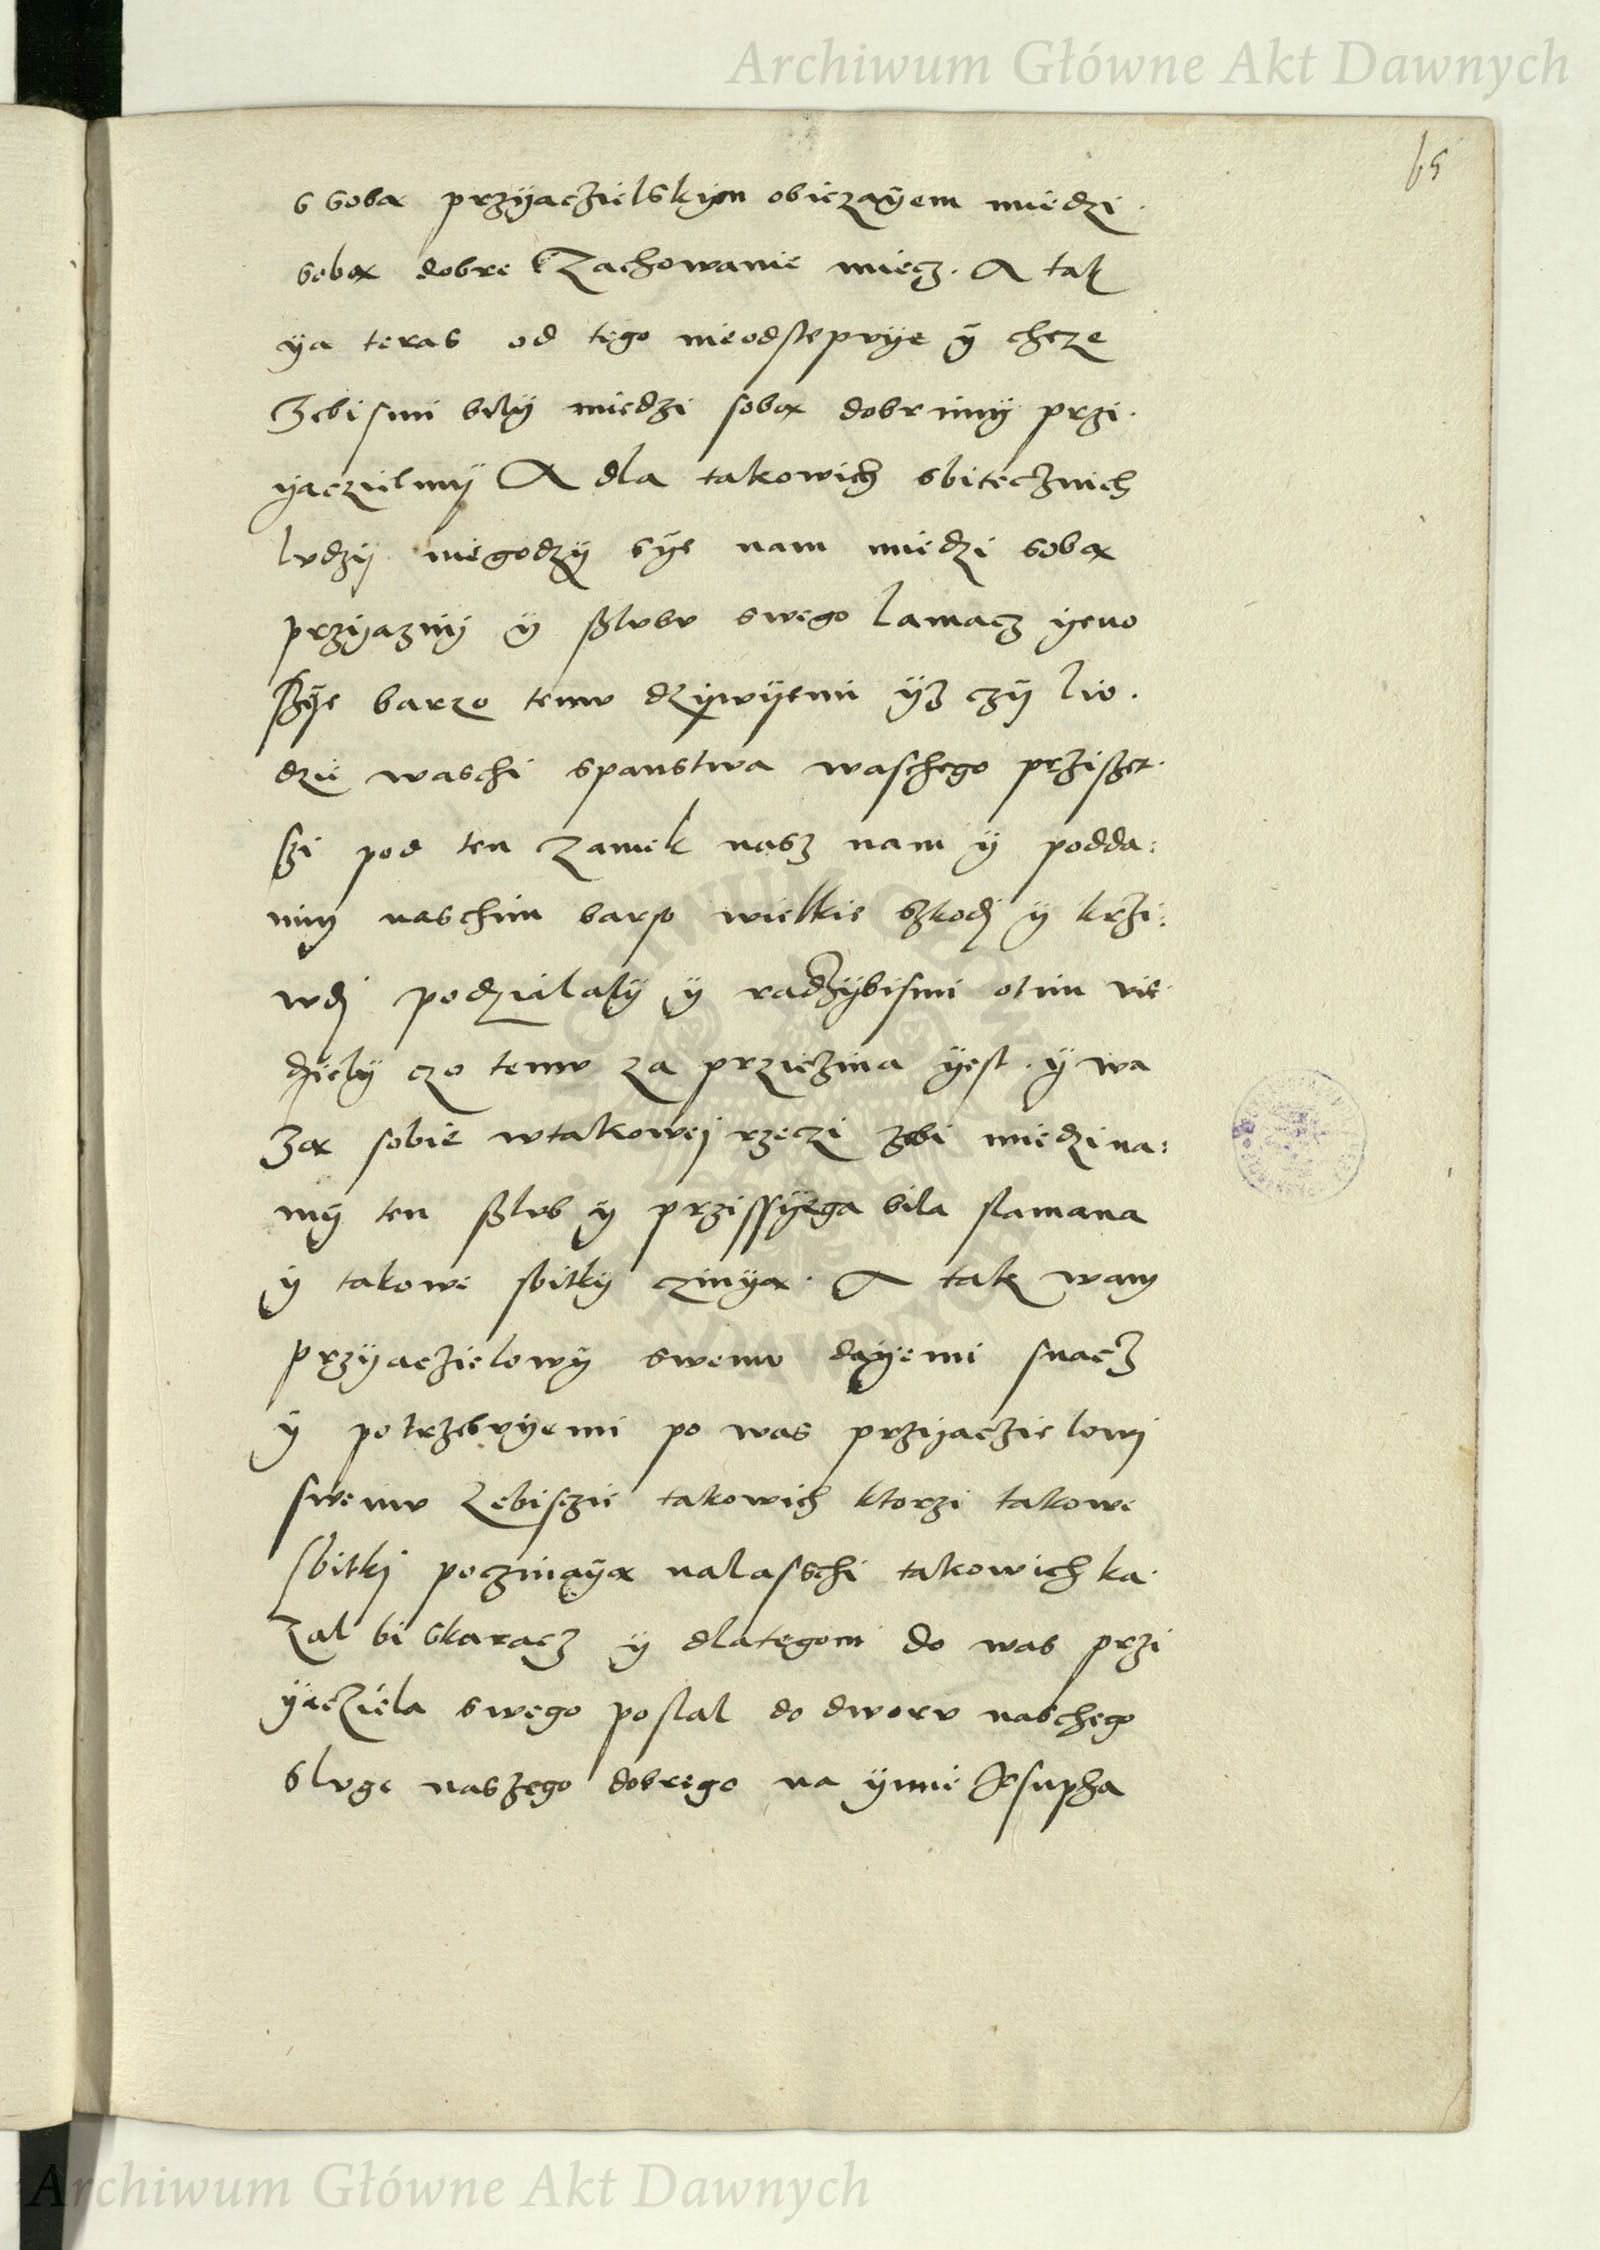 Archiwum Główne Akt Dawnych
65
s soba przÿaczielskym obiczaÿem miedzi
soba dobre Zachowanie miecz. A tak
ÿa teras od tego nieodstepuÿe ÿ chcze
Zebismi bilÿ miedzi soba dobrimÿ przi
ÿaczielmÿ A dla takowich sbitecznich
ludzÿ niegodzÿ sÿe nam miedzi soba
przÿaznÿ ÿ sslubu swego lamacz ÿeno
szÿe barzo temu dzÿwÿemi ÿz czÿ liv
dzie waschi spanstwa waschego prziszet
szi pod ten Zamek nasz nam ÿ podda:
nim naschim barso wielkie szkodj ÿ krzi:
wdj podzialalÿ ÿ radzÿbismi otim vie
dzielÿ czo temu za prziczina ÿest. ÿ wa
Za sobie wtakowej rzeczi zebi miedzi na:
mÿ ten sslub ÿ przissÿega bila slamana
ÿ takowe sbitkÿ czinÿa. A tak wam
przÿaczielowÿ swemu daÿemi snacz
ÿ potrzebuÿemi po was przÿaczielowj
swemu Zebisczie takowich ktorzi takowe
sbitkj poczinaÿa nalasschi takowich ka
Zal bi skaracz ÿ dlategom do was przi
ÿacziela swego poslal do dworu naschego
sluge naszego dobrego na ÿmie Josupha
Archiwum Główne Akt Dawnych